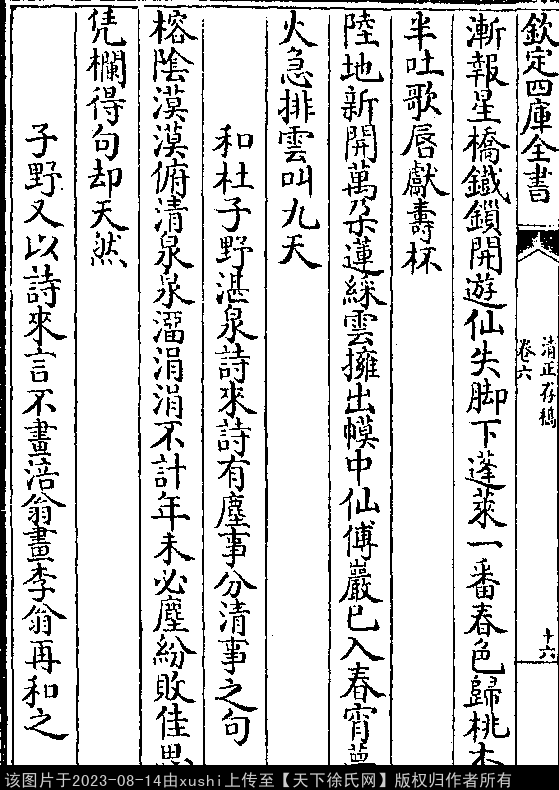 欽定四庫全書
清正存稿
卷六
十六
漸報星橋鐵鎖開遊仙失脚下蓬萊一番春色歸桃
半吐歌唇獻壽杯
陸地新開萬朶蓮綵雲擁出幙中仙傅巖已入春宵
火急排雲叫九天
和杜子野湛泉詩來詩有塵事分清事之句
榕陰漠漠俯清泉泉溜涓涓不計年未必塵紛敗佳思
凭欄得句却天然
子野又以詩來言不畫涪翁畫李翁再和之
该图片于2023-08-14由xushi上传至【天下徐氏网】版权归作者所有